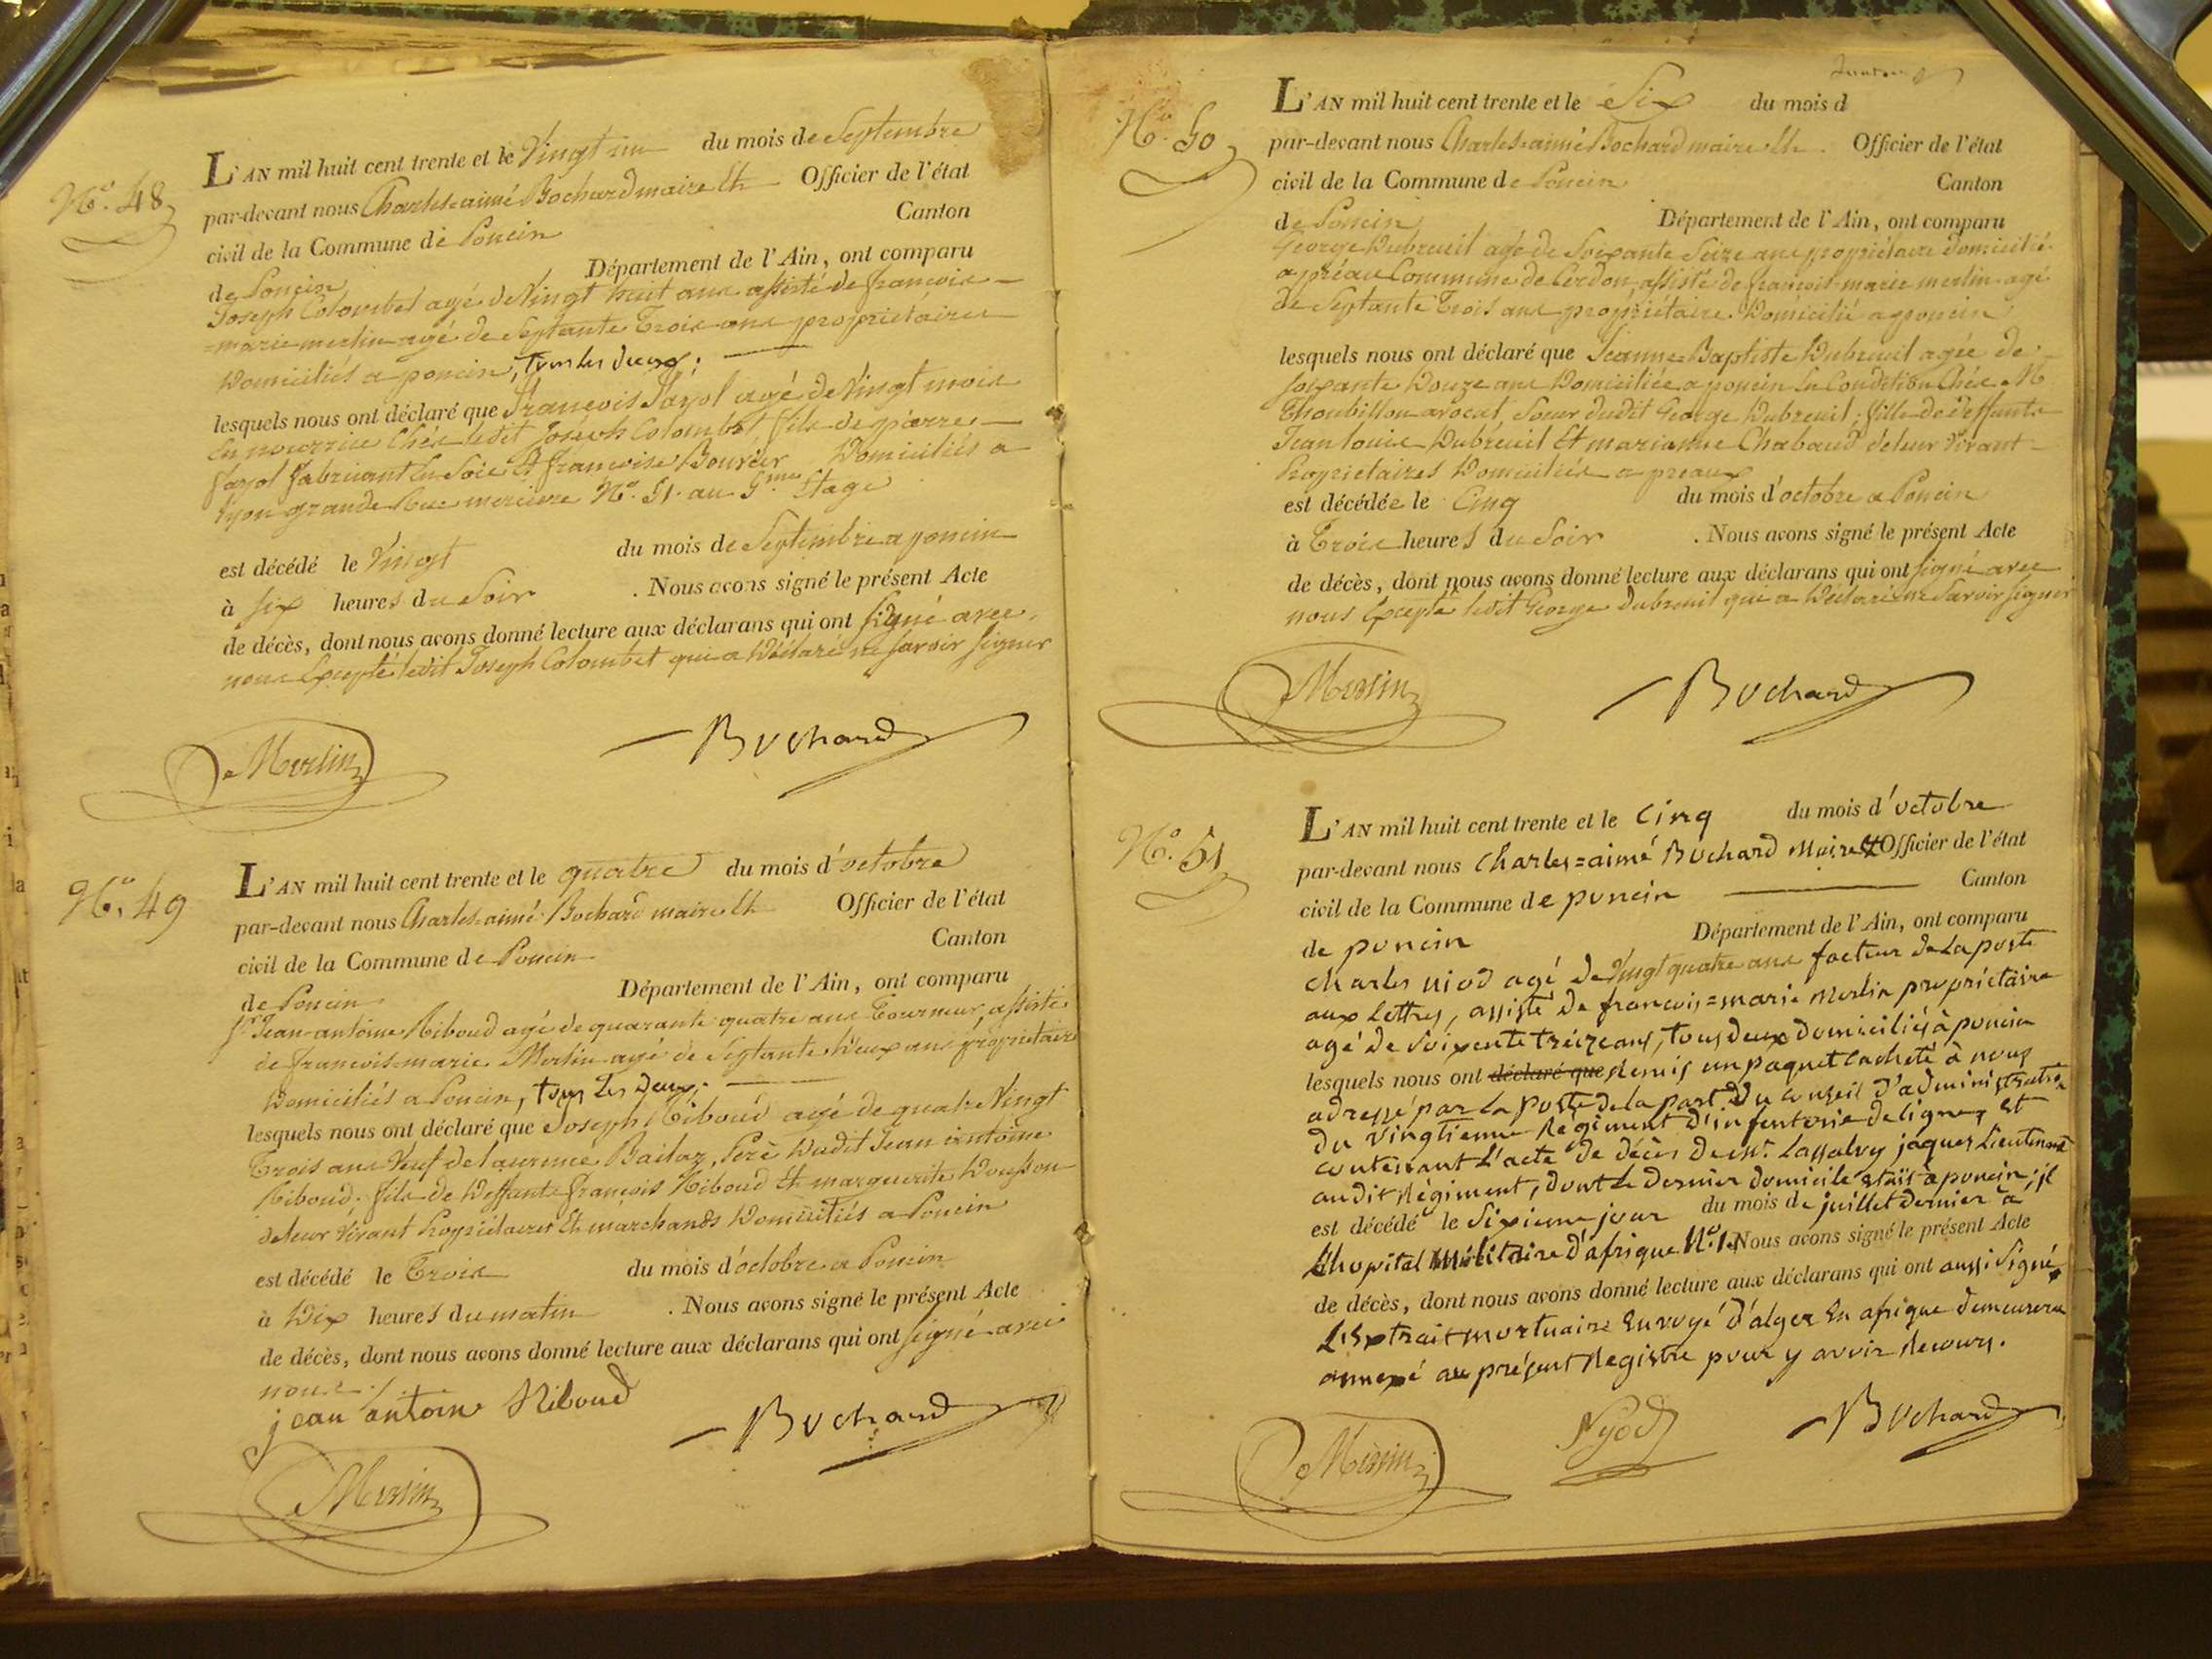 N.º 48
L'AN mil huit cent trente et le Vingt un du mois de Septembre
par-devant nous Charles-aimé Bochard maire Et Officier de l'état
civil de la Commune de Poncin Canton
de Poncin Département de l'Ain, ont comparu
Joseph Colombet agé de Vingt huit ans assisté de françois
=marie merlin agé de Septante Trois ans propriétaires
Domiciliés a poncin, tous les deux;
lesquels nous ont déclaré que François Fayol agé de Vingt mois
En nourrice Chés ledit Joseph Colombet, fils de pierre
fayol fabricant En Soie Et françoise Bouvier Domiciliés a
lyon grande Rue merciere Nº. 51. au 5.me Etage
est décédé le Vingt du mois de Septembre a poncin
à Six heures du Soir . Nous avons signé le présent Acte
de décès, dont nous avons donné lecture aux déclarans qui ont Signé avec
nous Excepté ledit Joseph Colombet qui a Déclaré ne Savoir Signer
Merlin Bochard
N.º 49
L'AN mil huit cent trente et le quatre du mois d'octobre
par-devant nous Charles-aimé Bochard maire Et Officier de l'état
civil de la Commune de Poncin Canton
de Poncin Département de l'Ain, ont comparu
Sr. Jean-antoine Riboud agé de quarante quatre ans Tourneur, assisté
de françois-marie Merlin agé de Septante Deux ans propriétaire
Domiciliés a Poncin, tous les deux;
lesquels nous ont déclaré que Joseph Riboud agé de quatre Vingt
Trois ans Veuf de laurence Bailaz, Père Dudit Jean antoine
Riboud; fils de Deffunts françois Riboud Et marguerite
de leur Vivant Propriétaires Et marchands Domiciliés a Poncin
est décédé le Trois du mois d'octobre a Poncin
à Dix heures du matin . Nous avons signé le présent Acte
de décès, dont nous avons donné lecture aux déclarans qui ont Signé avec
nous
jean antoine Riboud
Bochard
Merlin
N.º 50
L'AN mil huit cent trente et le Six du mois d
par-devant nous Charles-aimé Bochard maire Et Officier de l'état
civil de la Commune de Poncin Canton
de Poncin Département de l'Ain, ont comparu
George Dubreuil agé de Soixante Seize ans propriétaire domicilié
a préau Commune de Cerdon, assisté de françois-marie merlin agé
de Septante Trois ans propriétaire Domicilié a poncin
lesquels nous ont déclaré que Jeanne Baptiste Dubreuil agée de
Soixante Douze ans Domiciliée a poncin En Condition Chés M
Thoubillon avocat, Sœur dudit George Dubreuil; fille de deffunts
Jean louis Dubreuil Et marianne Chabaud de leur Vivant
Propriétaires Domiciliés a preaux
est décédée le Cinq du mois d'octobre a Poncin
à Trois heures du Soir . Nous avons signé le présent Acte
de décès, dont nous avons donné lecture aux déclarans qui ont Signé avec
nous Excepté ledit George Dubreuil qui a Déclaré ne Savoir Signer
Merlin Bochard
N.º 51
L'AN mil huit cent trente et le Cinq du mois d'octobre
par-devant nous Charles=aimé Bochard Maire Et Officier de l'état
civil de la Commune de poncin Canton
de poncin Département de l'Ain, ont comparu
Charles niod agé de Vingt quatre ans facteur de La poste
aux Lettres, assisté de françois=marie Merlin propriétaire
agé de Soixante treize ans, tous deux domiciliés à poncin
lesquels nous ont déclaré que Remis un paquet Cacheté à nous
adressé par la poste de la part du Conseil d'administration
du Vingtieme Régiment d'infanterie de ligne, et
contenant L'acte de décès de mr. Lassalvy jaques Lieutenant
audit Régiment, dont le dernier domicile était à poncin; il
est décédé le Sixieme jour du mois de juillet dernier à
L'hopital Militaire d'afrique Nº.1er Nous avons signé le présent Acte
de décès, dont nous avons donné lecture aux déclarans qui ont aussi Signé,
L'Extrait mortuaire Envoyé d'alger En afrique demeurera
annexé au présent Registre pour y avoir Recours.
Merlin Nyod Bochard